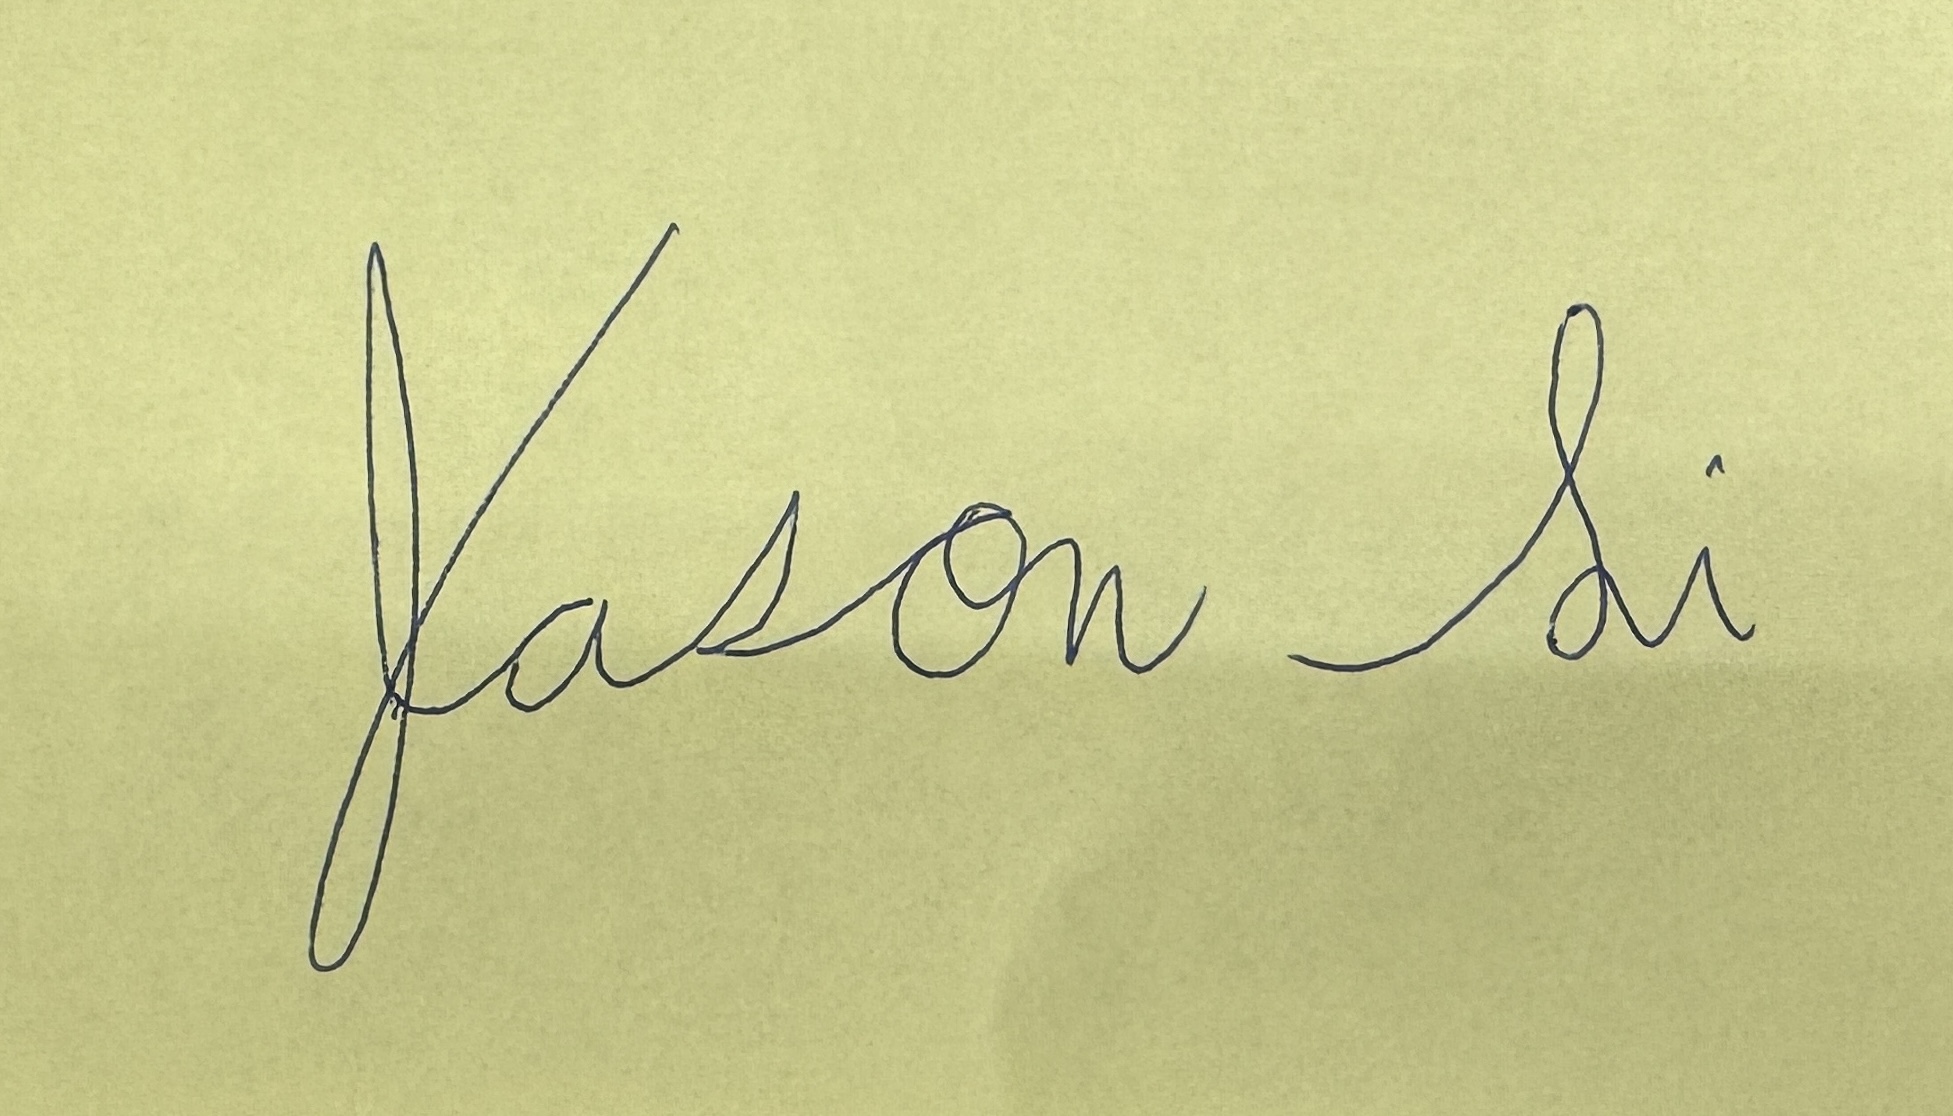 Jason Li